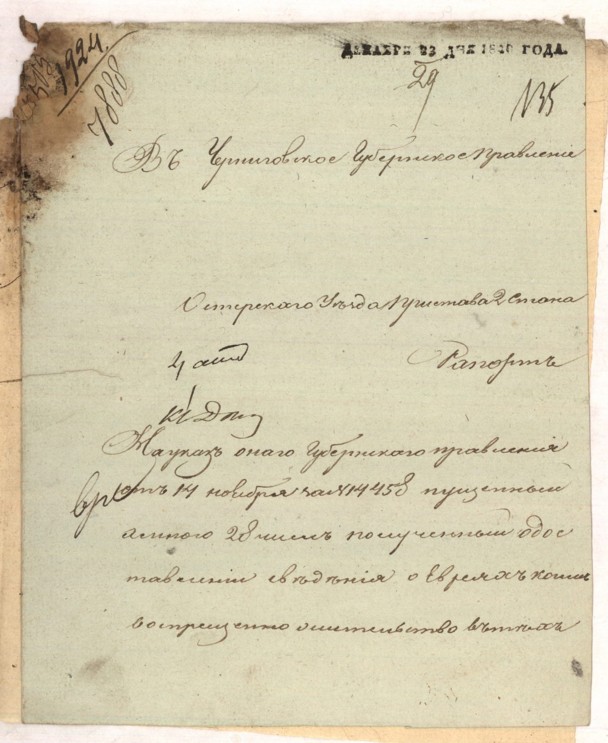 1924.
7888
ДЕКАБРЯ 23 ДНЯ 1840 ГОДА.
29
N35
Въ Черниговское Губернское правленіе
Остерскаго Уѣзда Пристава 2 Стана
Рапортъ
На указъ онаго Губернскаго правленія
отъ 14 ноября за N 14458 пущенный
а мною 28 числъ полученный о дос
тавленіи свѣдѣнія о Евреяхъ коимъ
воспрещенно жительство въ тѣхъ